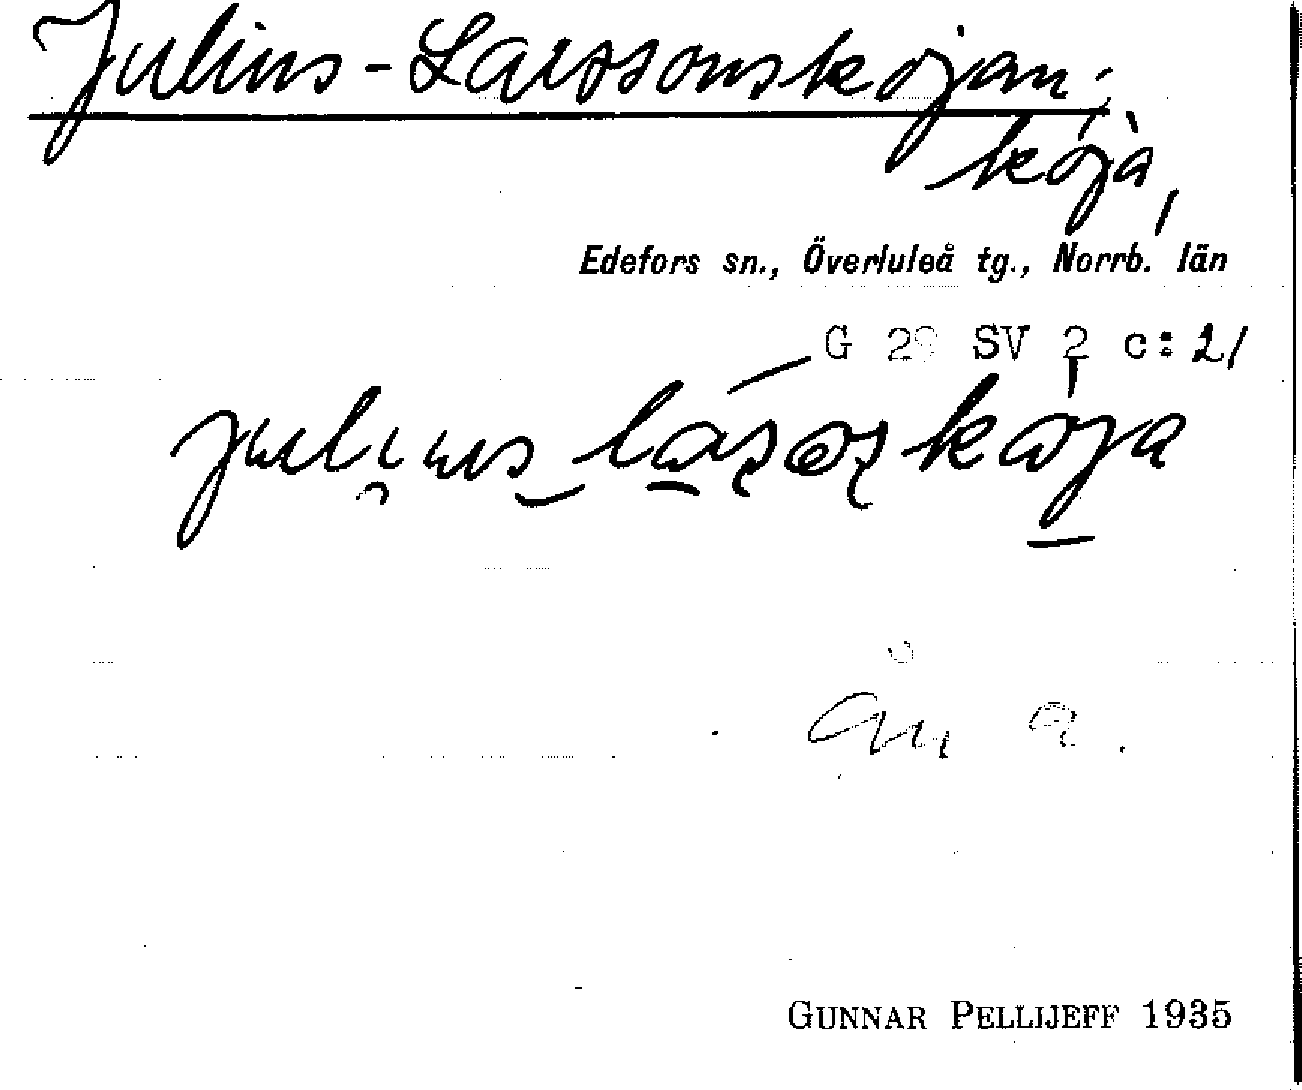 Julius-Larssonskojan,
koja,
Edefors sn., Överluleå tg., Norrb. län
G 29 SV 2 c: 21
GUNNAR PELLIJEFF 1935